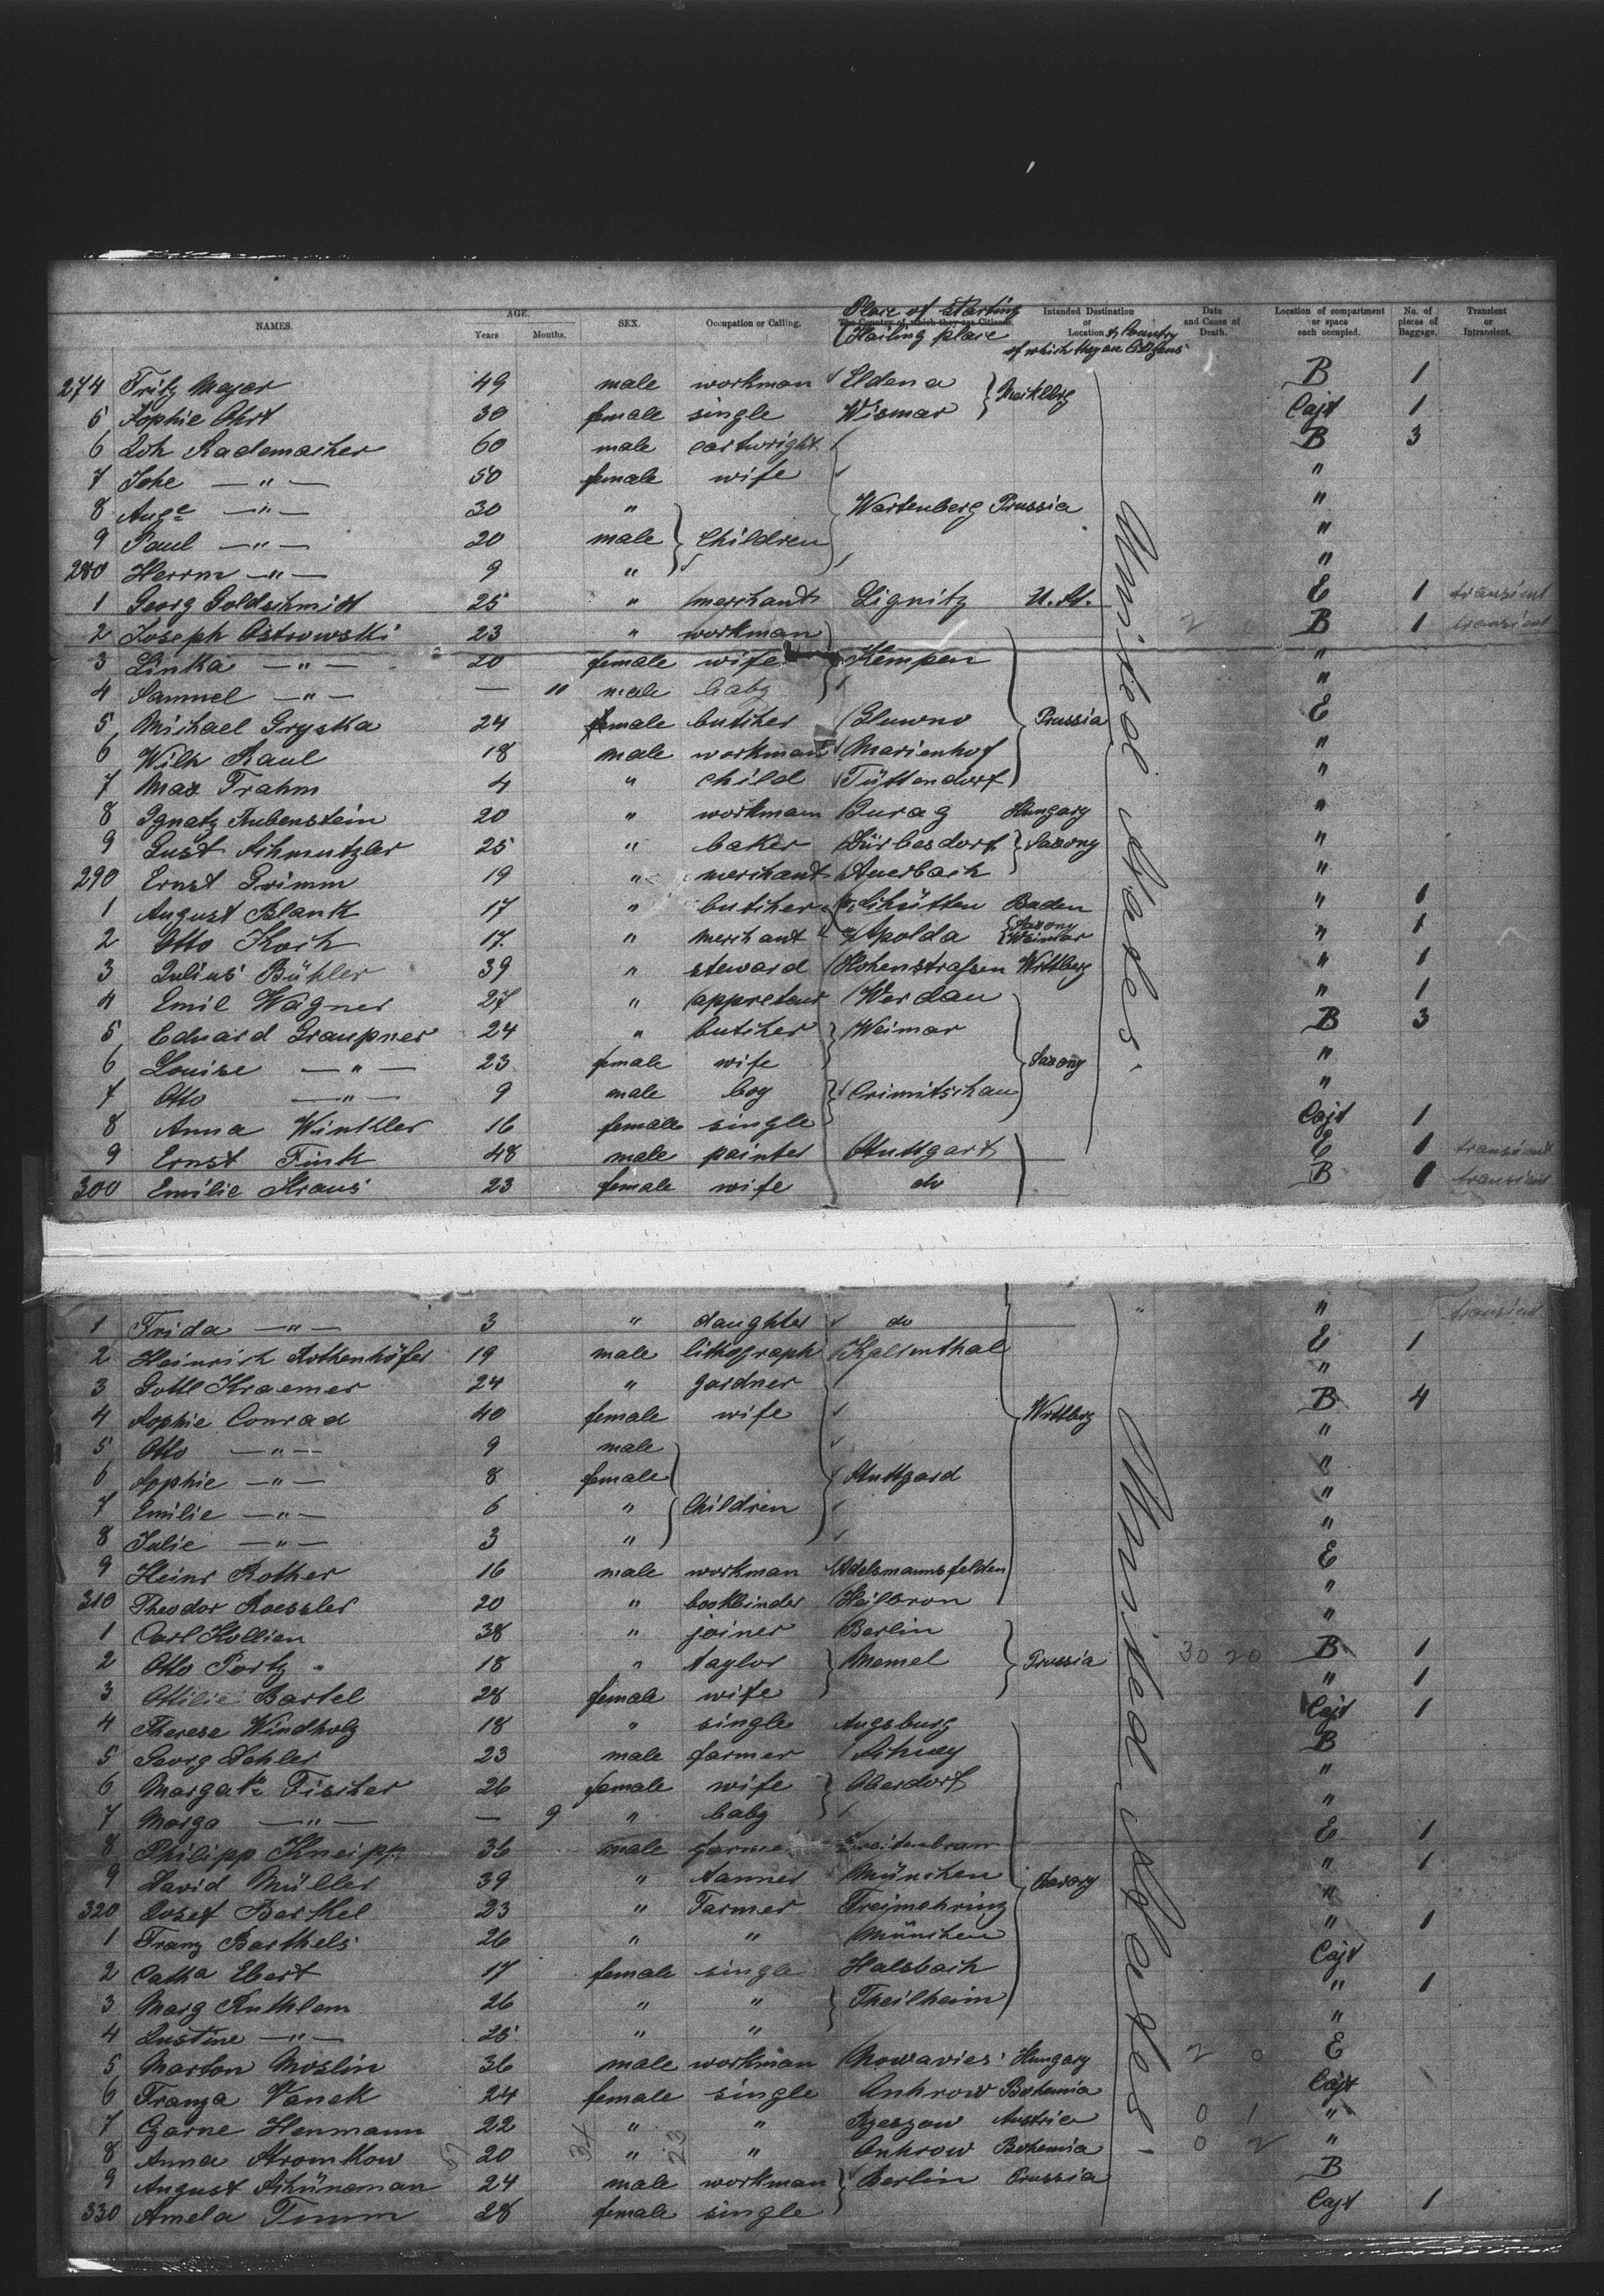 NAMES. AGE. Years Months. SEX. Occupation or Calling. The Country of which they are Citizens. Place of Starting (Hailing place Intended Destination or Location & Country of which they are Citizens Date and Cause of Death. Location of compartment or space each occupied. No. of pieces of Baggage. Transient or Intransient.
274 Fritz Meyer 49 male workman Eldena Mecklbg B 1
5 Sophie Ohrt 30 female single Wismar Cajt 1
6 Joh Rademacher 60 male cartwright B 3
7 Johe —"— 50 female wife "
8 Auge —"— 30 " Wartenberg Prussia "
9 Paul —"— 20 male Children "
280 Herrm —"— 9 " "
1 Georg Goldschmidt 25 " merchant Lignitz U. St. E 1 transient
2 Joseph Ostrowski 23 " workman 2 B 1 transient
3 Linka —"— 20 female wife Kempen "
4 Samuel —"— — 11 male baby "
5 Michael Gryska 24 male butcher Gluwno Prussia E
6 Wilh Raul 18 male workman Marienhof "
7 Max Frahm 4 " child Tüttendorf "
8 Ignatz Rubenstein 20 " workman Hungary "
9 Gust Schmutzler 25 " baker Saxony "
290 Ernst Grimm 19 " merchant Auerbach "
1 August Blank 17 " butcher Baden " 1
2 Otto Koch 17 " merchant Apolda Saxony Weimar " 1
3 Julius Bühler 39 " steward Hohenstrassen Wrttbrg " 1
4 Emil Wagner 27 " appreteur Werdau " 1
5 Eduard Graupner 24 " butcher Weimar B 3
6 Louise —"— 23 female wife Saxony "
7 Otto —"— 9 male boy Crimitschau "
8 Anna Winkler 16 female single Cajt 1
9 Ernst Fink 48 male painter Stuttgart E 1 transient
300 Emilie Kraus 23 female wife do B 1 transient
United States.
1 Frida —"— 3 " daughter do " " transient
2 Heinrich Rothenhöfer 19 male lithograph Kaltenthal E 1
3 Gottl Kraemer 24 " gardner "
4 Sophie Conrad 40 female wife Wrttbrg B 4
5 Otto —"— 9 male "
6 Sophie —"— 8 female Stuttgard "
7 Emilie —"— 6 " Children "
8 Julie —"— 3 " "
9 Heinr Rother 16 male workman Adelsmannsfelden E
310 Theodor Roessler 20 " bookbinder Heilbron "
1 Carl Kollien 38 " joiner Berlin "
2 Otto Portz 18 " taylor Memel Prussia 30 20 B 1
3 Ottilie Bartel 28 female wife " 1
4 Therese Windholz 18 " single Augsburg Cajt 1
5 Georg 23 male farmer B
6 Fischer 26 female wife Oberdorf "
7 Marga —"— — 9 " baby "
8 Philipp Kneipp 36 male farmer E 1
9 David Müller 39 " tanner München " 1
320 Josef Berkel 23 " Farmer "
1 Franz Barthels 26 " " München " 1
2 Catha Ebert 17 female single Halsbach Cajt
3 Marg 26 " " Theilheim " 1
4 Justine —"— 25 " " "
5 Marton Moslin 36 male workman Hungary 2 0 E
6 Franza Vanek 24 female single Bohemia Cajt
7 22 " " Rzeszow Austria 0 1 "
8 Anna 20 " " Bohemia 0 2 "
9 August Schüneman 24 male workman Berlin Prussia B
330 Amela Timm 28 female single Cajt 1
United States.
34 23